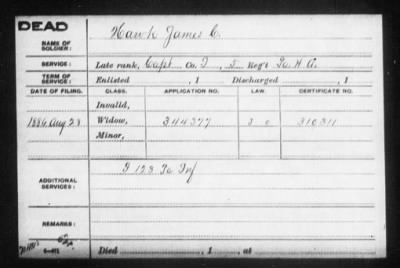 DEAD
NAME OF SOLDIER: Hawk James C.
SERVICE: Late rank, Capt Co. I, 5 Reg't Pa. H. A.
TERM OF SERVICE: Enlisted , 1 Discharged , 1
DATE OF FILING. CLASS. APPLICATION NO. LAW. CERTIFICATE NO.
Invalid,
1886 Aug 23 Widow, 344377 310311
Minor,
ADDITIONAL SERVICES: I 123 Pa Inf
REMARKS:
Died , 1 , at